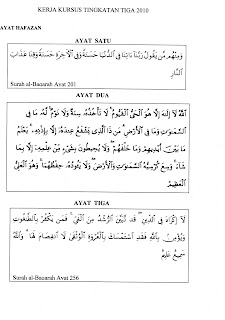 KERJA KURSUS TINGKATAN TIGA 2010
AYAT HAFAZAN
AYAT SATU
وَمِنْهُم مَّن يَقُولُ رَبَّنَا آتِنَا فِي الدُّنْيَا حَسَنَةً وَفِي الْآخِرَةِ حَسَنَةً وَقِنَا عَذَابَ
النَّارِ
Surah al-Baqarah Ayat 201
AYAT DUA
اللَّهُ لَا إِلَهَ إِلَّا هُوَ الْحَيُّ الْقَيُّومُ لَا تَأْخُذُهُ سِنَةٌ وَلَا نَوْمٌ لَهُ مَا فِي
السَّمَاوَاتِ وَمَا فِي الْأَرْضِ مَن ذَا الَّذِي يَشْفَعُ عِندَهُ إِلَّا بِإِذْنِهِ يَعْلَمُ
مَا بَيْنَ أَيْدِيهِمْ وَمَا خَلْفَهُمْ وَلَا يُحِيطُونَ بِشَيْءٍ مِّنْ عِلْمِهِ إِلَّا بِمَا
شَاءَ وَسِعَ كُرْسِيُّهُ السَّمَاوَاتِ وَالْأَرْضَ وَلَا يَئُودُهُ حِفْظُهُمَا وَهُوَ الْعَلِيُّ
الْعَظِيمُ
AYAT TIGA
لَا إِكْرَاهَ فِي الدِّينِ قَد تَّبَيَّنَ الرُّشْدُ مِنَ الْغَيِّ فَمَن يَكْفُرْ بِالطَّاغُوتِ
وَيُؤْمِن بِاللَّهِ فَقَدِ اسْتَمْسَكَ بِالْعُرْوَةِ الْوُثْقَى لَا انفِصَامَ لَهَا وَاللَّهُ
سَمِيعٌ عَلِيمٌ
Surah al-Baqarah Ayat 256